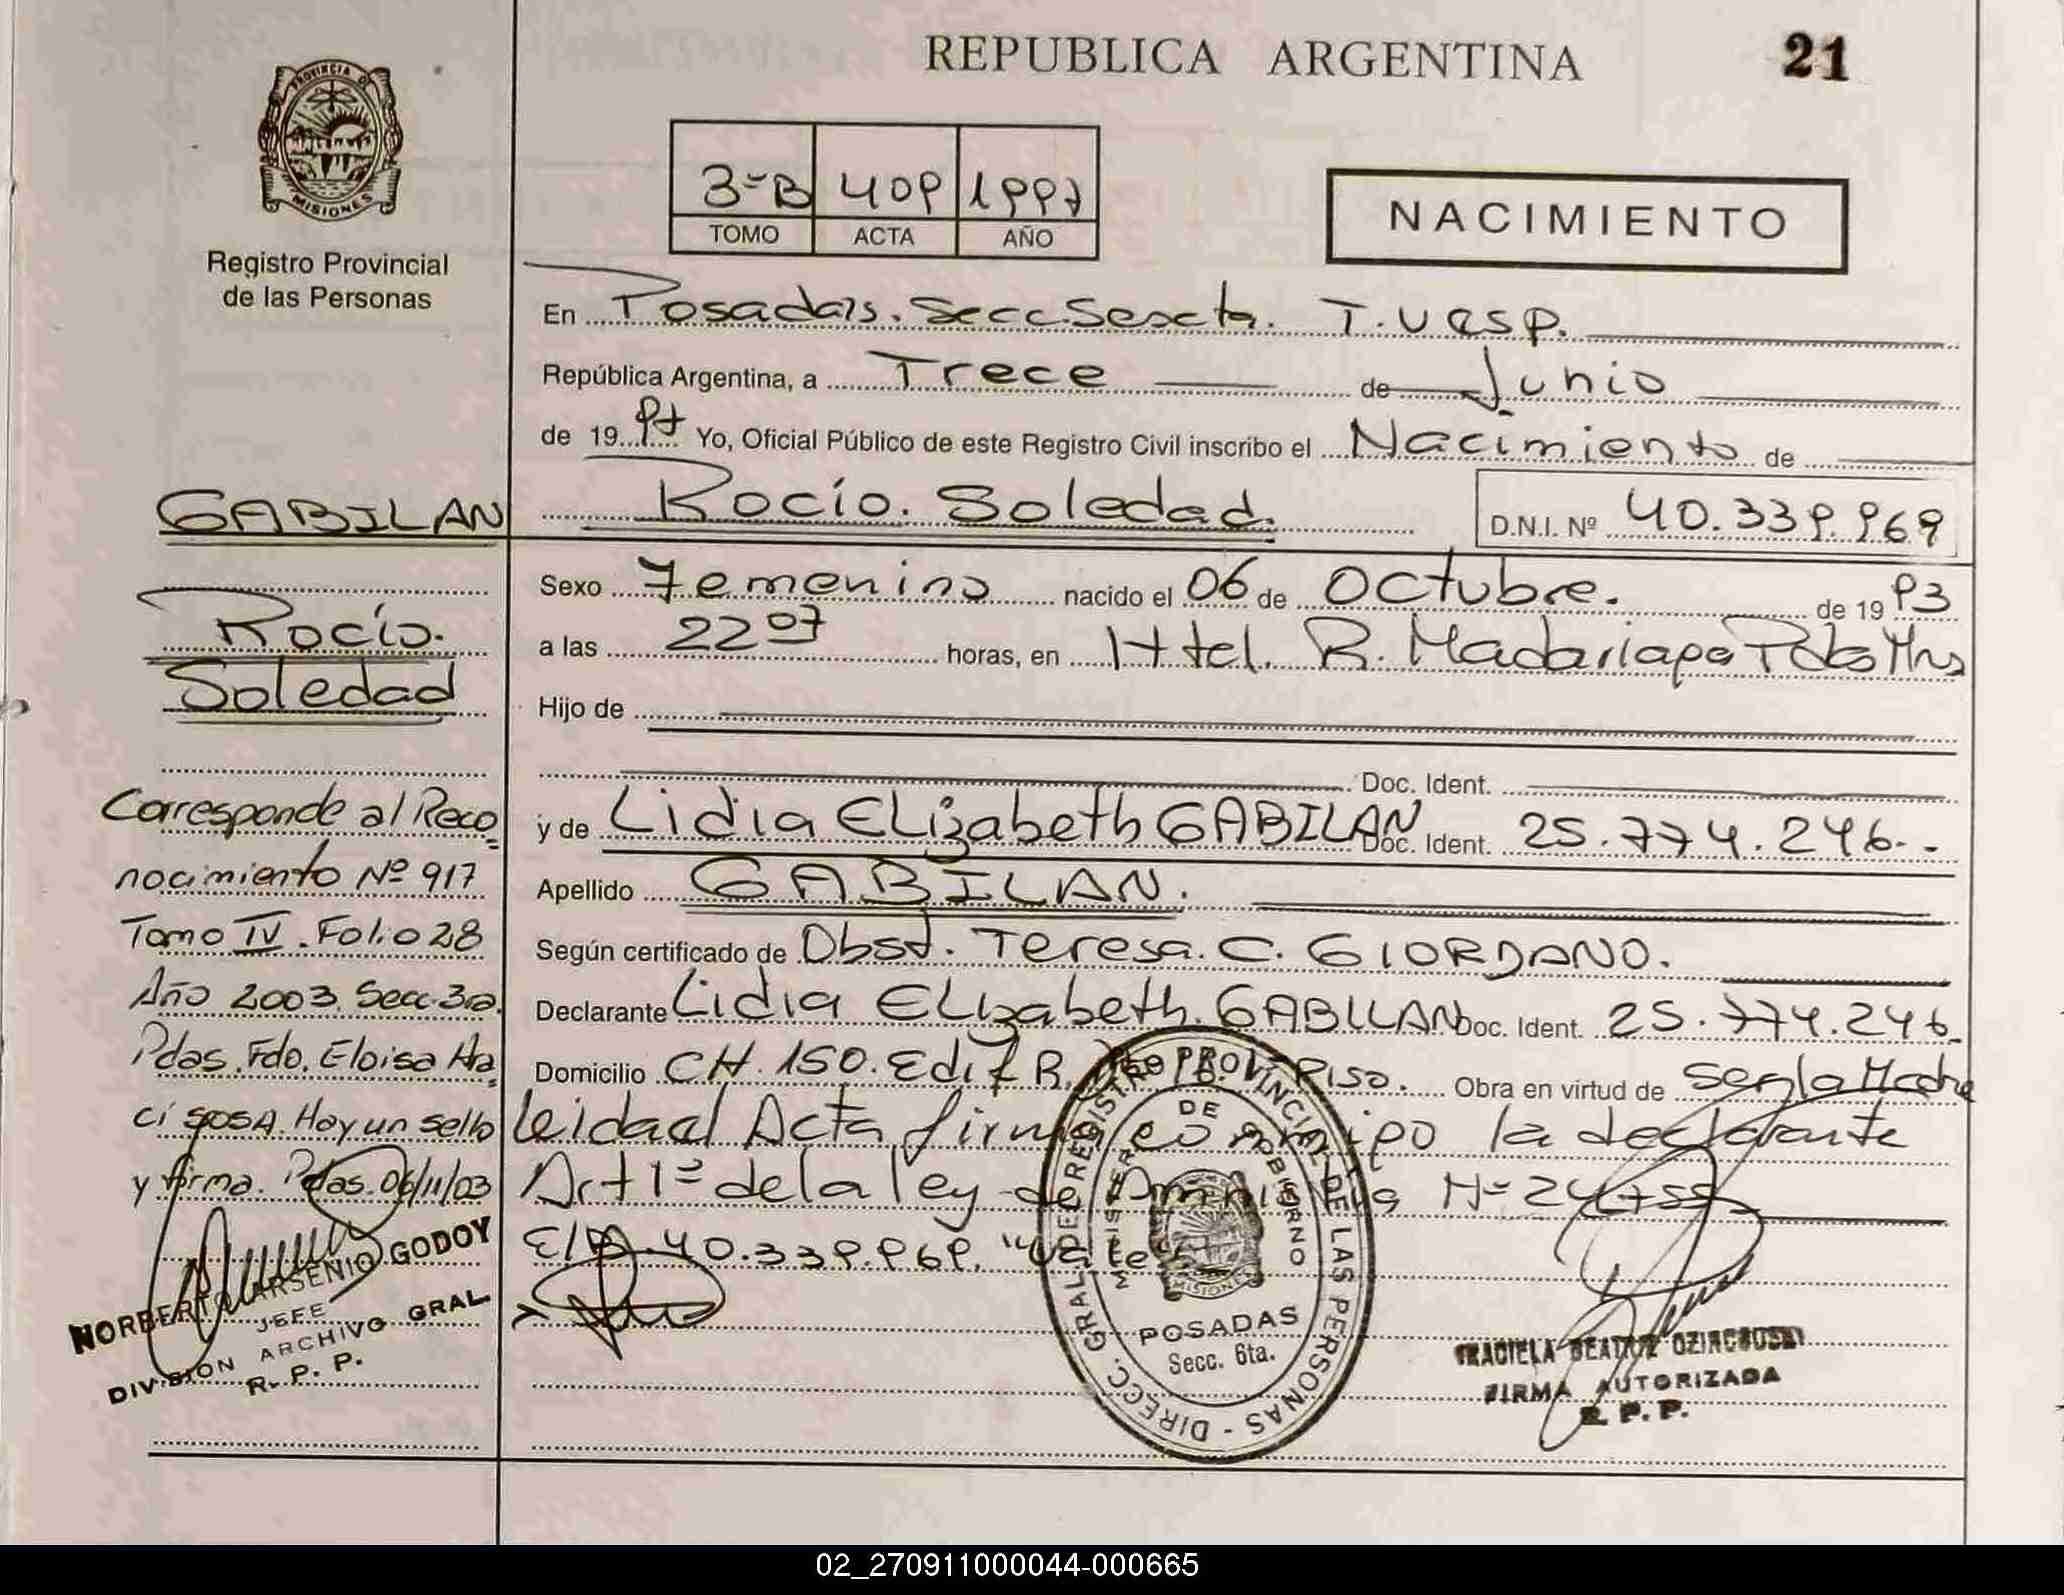 REPUBLICA ARGENTINA
21
PROVINCIA DE
MISIONES
Registro Provincial
de las Personas
3-B 409 1997
TOMO ACTA AÑO
NACIMIENTO
En Posadas. Secc. Sexta. T. Vesp.
República Argentina, a Trece de Junio
de 1997 Yo, Oficial Público de este Registro Civil inscribo el Nacimiento de
Rocío. Soledad. D.N.I. Nº 40.339.969
Sexo Femenino nacido el 06 de Octubre. de 1993
a las 22 07 horas, en Htal. R. Madariaga Pdas Mns
Hijo de
Doc. Ident.
y de Lidia ELizabeth GABILAN Doc. Ident. 25.774.246.-
Apellido GABILAN.
Según certificado de Obst. Teresa. C. GIORDANO.
Declarante Lidia ELizabeth. GABILAN Doc. Ident. 25.774.246
Domicilio CH. 150. Edif R. Piso. Obra en virtud de ser la Madre
leida el Acta firma conmigo la declarante
Art 1º de la ley de Nº 24755
E/R. 40.339.969. "Vale"
GABILAN
Rocío.
Soledad
Corresponde al Reco
nocimiento Nº 917
Tomo IV. Folio 28
Año 2003. Secc. 3ra.
Pdas. Fdo. Eloisa Ara
ci SOSA. Hay un sello
y firma. Pdas. 06/11/03
NORBERTO ARSENIO GODOY
JEFE
DIVISION ARCHIVO GRAL.
R. P. P.
DIRECC. GRAL. DE REGISTRO PROVINCIAL DE LAS PERSONAS -
MINISTERIO DE GOBIERNO
MISIONES
POSADAS
Secc. 6ta.
GRACIELA BEATRIZ
FIRMA AUTORIZADA
R. P. P.
02_270911000044-000665